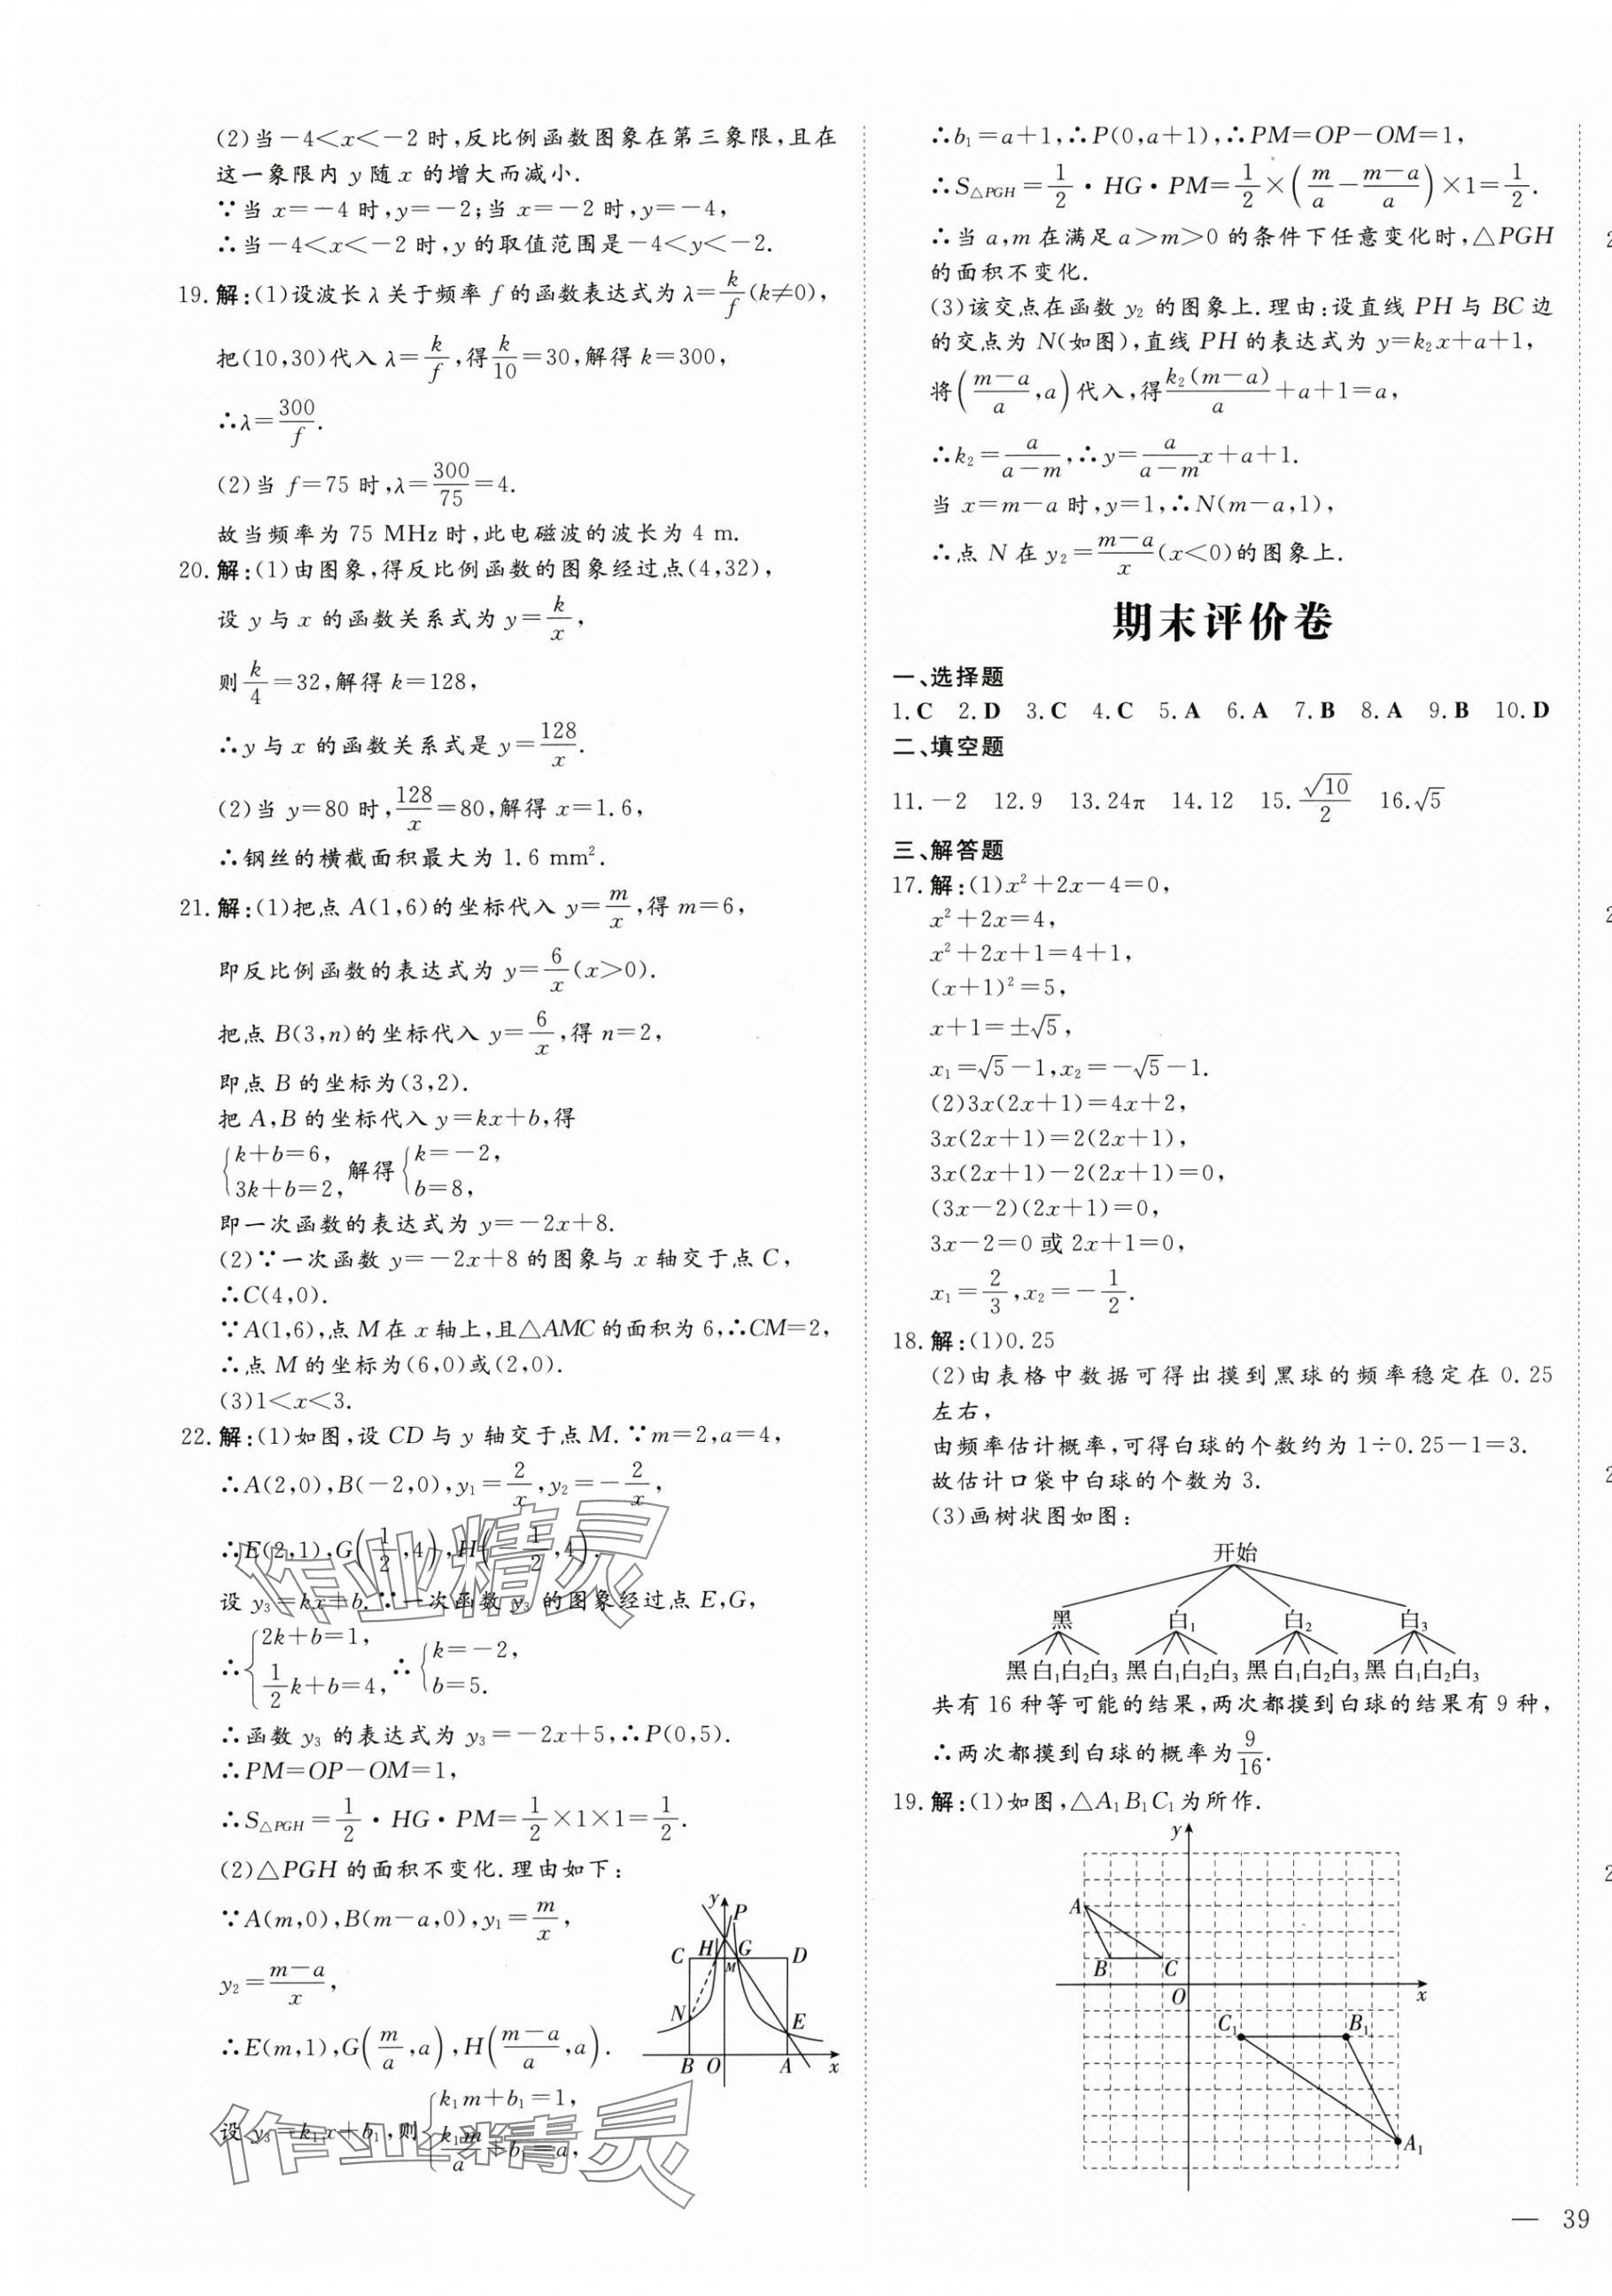 (2)当－4<x<－2 时,反比例函数图象在第三象限,且在
这一象限内 y 随 x 的增大而减小.
∵当 x=－4 时,y=－2;当 x=－2 时,y=－4,
∴当－4<x<－2 时,y 的取值范围是－4<y<－2.
19. 解:(1)设波长 λ 关于频率 f 的函数表达式为 λ=k/f(k≠0),
把(10,30)代入 λ=k/f,得k/10=30,解得 k=300,
∴λ=300/f.
(2)当 f=75 时,λ=300/75=4.
故当频率为 75 MHz 时,此电磁波的波长为 4 m.
20. 解:(1)由图象,得反比例函数的图象经过点(4,32),
设 y 与 x 的函数关系式为 y=k/x,
则k/4=32,解得 k=128,
∴y 与 x 的函数关系式是 y=128/x.
(2)当 y=80 时,128/x=80,解得 x=1.6,
∴钢丝的横截面积最大为 1.6 mm².
21. 解:(1)把点 A(1,6)的坐标代入 y=m/x,得 m=6,
即反比例函数的表达式为 y=6/x(x>0).
把点 B(3,n)的坐标代入 y=6/x,得 n=2,
即点 B 的坐标为(3,2).
把 A,B 的坐标代入 y=kx+b,得
{k+b=6, 3k+b=2, 解得 {k=－2, b=8,
即一次函数的表达式为 y=－2x+8.
(2)∵一次函数 y=－2x+8 的图象与 x 轴交于点 C,
∴C(4,0).
∵A(1,6),点 M 在 x 轴上,且△AMC 的面积为 6,∴CM=2,
∴点 M 的坐标为(6,0)或(2,0).
(3)1<x<3.
22. 解:(1)如图,设 CD 与 y 轴交于点 M.∵m=2,a=4,
∴A(2,0),B(－2,0),y₁=2/x,y₂=－2/x,
∴E(2,1),G(1/2,4),H(－1/2,4).
设 y₃=kx+b.∵一次函数 y₃ 的图象经过点 E,G,
∴{2k+b=1, 1/2k+b=4, ∴{k=－2, b=5.
∴函数 y₃ 的表达式为 y₃=－2x+5,∴P(0,5).
∴PM=OP－OM=1,
∴S△PGH=1/2·HG·PM=1/2×1×1=1/2.
(2)△PGH 的面积不变化.理由如下:
∵A(m,0),B(m－a,0),y₁=m/x,
y₂=(m－a)/x,
∴E(m,1),G(m/a,a),H((m－a)/a,a).
设 y₃=k₁x+b₁,则{k₁m+b₁=1, k₁m/a+b₁=a,
y P
C H G D
M
N E
B O A x
作业精灵
作业精灵
∴b₁=a+1,∴P(0,a+1),∴PM=OP－OM=1,
∴S△PGH=1/2·HG·PM=1/2×(m/a－(m－a)/a)×1=1/2.
∴当 a,m 在满足 a>m>0 的条件下任意变化时,△PGH
的面积不变化.
(3)该交点在函数 y₂ 的图象上.理由:设直线 PH 与 BC 边
的交点为 N(如图),直线 PH 的表达式为 y=k₂x+a+1,
将((m－a)/a,a)代入,得k₂(m－a)/a+a+1=a,
∴k₂=a/(a－m),∴y=a/(a－m)x+a+1.
当 x=m－a 时,y=1,∴N(m－a,1),
∴点 N 在 y₂=(m－a)/x(x<0)的图象上.
期末评价卷
一、选择题
1.C 2.D 3.C 4.C 5.A 6.A 7.B 8.A 9.B 10.D
二、填空题
11.－2 12.9 13.24π 14.12 15.√10/2 16.√5
三、解答题
17. 解:(1)x²+2x－4=0,
x²+2x=4,
x²+2x+1=4+1,
(x+1)²=5,
x+1=±√5,
x₁=√5－1,x₂=－√5－1.
(2)3x(2x+1)=4x+2,
3x(2x+1)=2(2x+1),
3x(2x+1)－2(2x+1)=0,
(3x－2)(2x+1)=0,
3x－2=0 或 2x+1=0,
x₁=2/3,x₂=－1/2.
18. 解:(1)0.25
(2)由表格中数据可得出摸到黑球的频率稳定在 0.25
左右,
由频率估计概率,可得白球的个数约为 1÷0.25－1=3.
故估计口袋中白球的个数为 3.
(3)画树状图如图:
开始
黑 白₁ 白₂ 白₃
黑 白₁白₂白₃ 黑 白₁白₂白₃ 黑 白₁白₂白₃ 黑 白₁白₂白₃
共有 16 种等可能的结果,两次都摸到白球的结果有 9 种,
∴两次都摸到白球的概率为9/16.
19. 解:(1)如图,△A₁B₁C₁ 为所作.
y
A
B C
O x
C₁ B₁
A₁
— 39